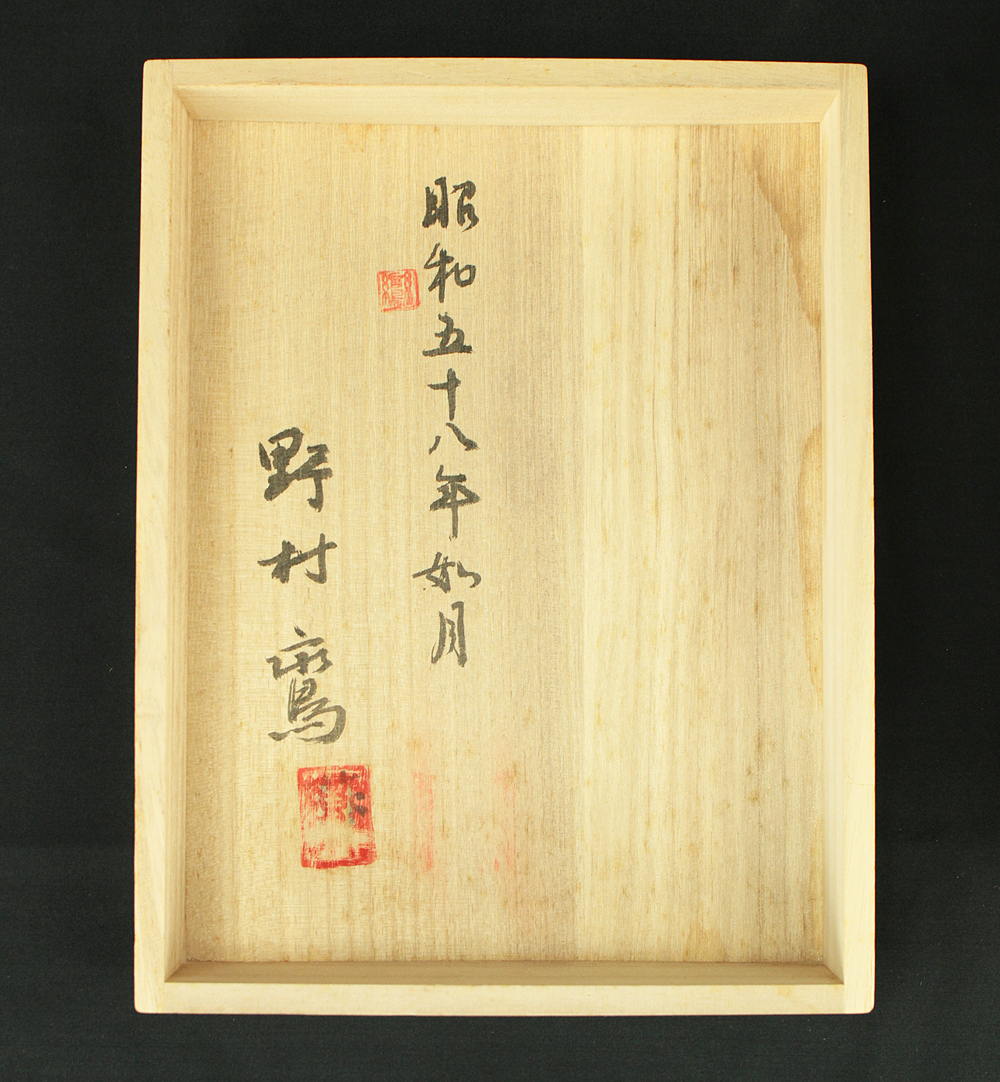 昭和五十八年如月
野村鸞